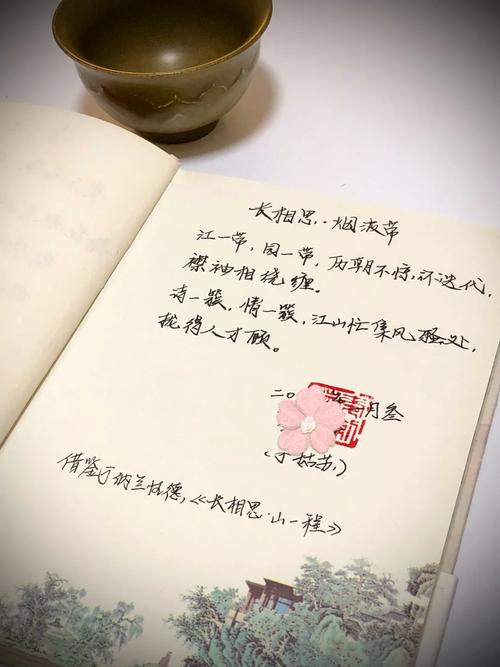 长相思·烟波带
江一带，园一带，历朝不惊怀迭代，
襟袖相绕缠。
诗一簇，情一簇，江山忙集风骚处，
拢得人才顾。
二〇 月叁
(于姑苏)
借鉴于纳兰性德，《长相思·山一程》